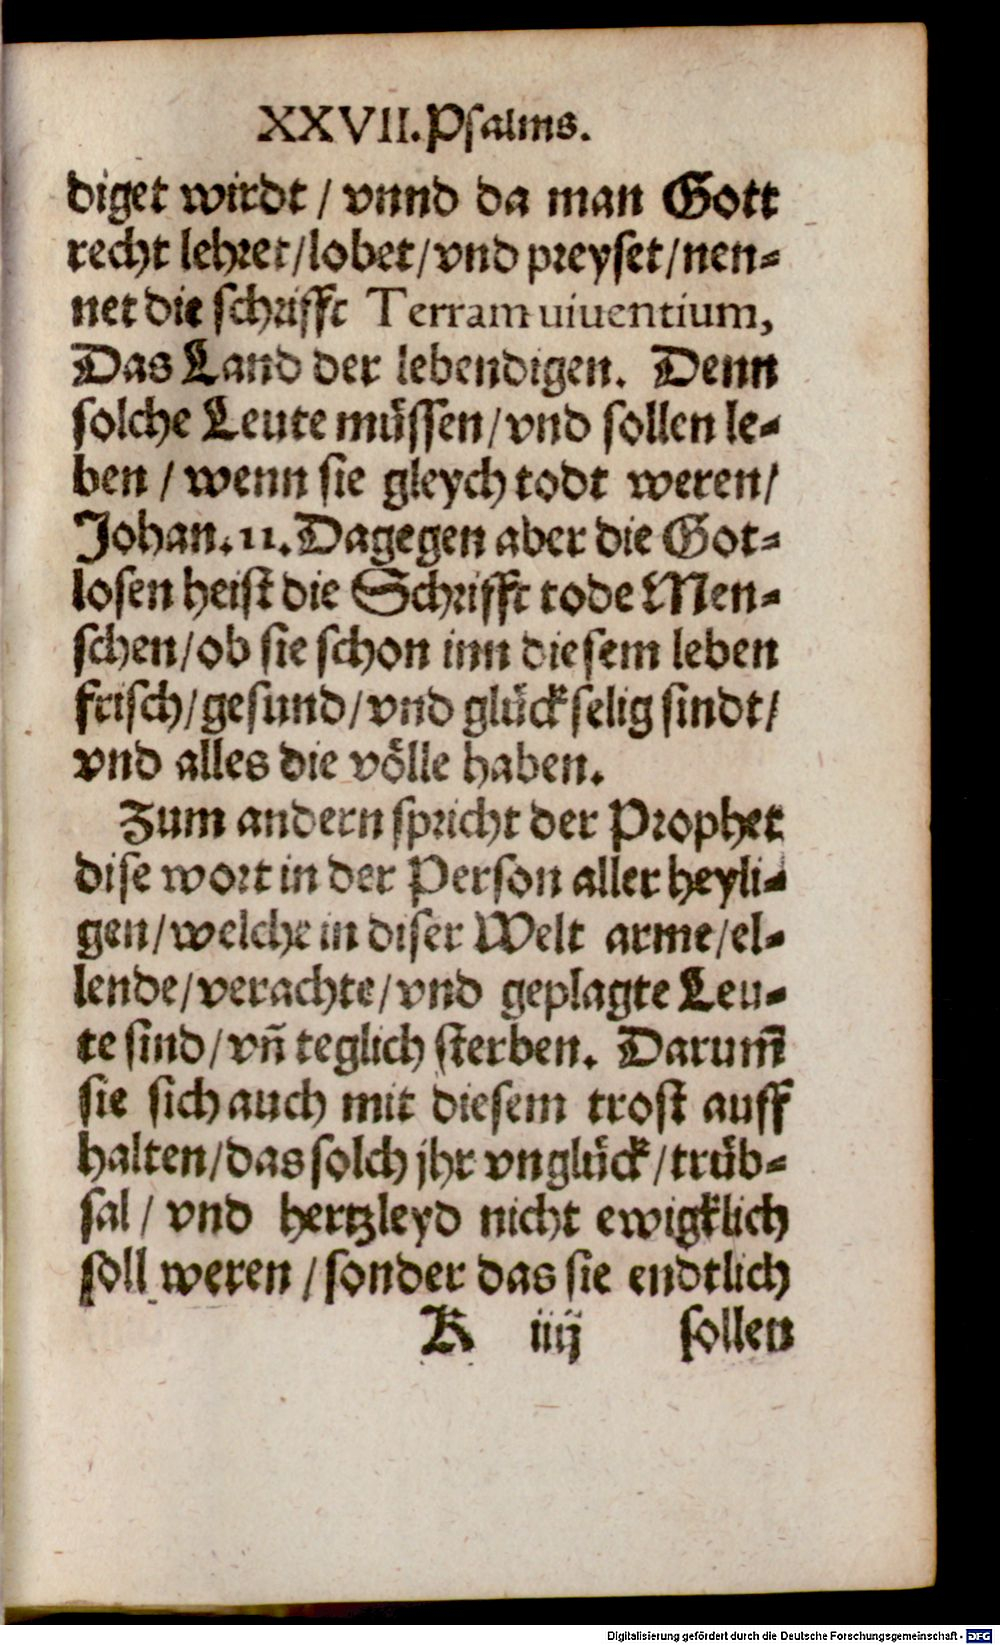 XXVII. Psalms.
diget wirdt / vnnd da man Gott
recht lehret / lobet / vnd preyset / nen-
net die schrifft Terram uiuentium,
Das Land der lebendigen. Denn
solche Leute müssen / vnd sollen le-
ben / wenn sie gleych todt weren /
Johan. 11. Dagegen aber die Got-
losen heist die Schrifft tode Men-
schen / ob sie schon inn diesem leben
frisch / gesund / vnd glückselig sindt /
vnd alles die völle haben.
Zum andern spricht der Prophet
dise wort in der Person aller heyli-
gen / welche in diser Welt arme / el-
lende / verachte / vnd geplagte Leu-
te sind / vñ teglich sterben. Darum̃
sie sich auch mit diesem trost auff
halten / das solch jhr vnglück / trüb-
sal / vnd hertzleyd nicht ewigklich
soll weren / sonder das sie endtlich
K iiij sollen
Digitalisierung gefördert durch die Deutsche Forschungsgemeinschaft - DFG